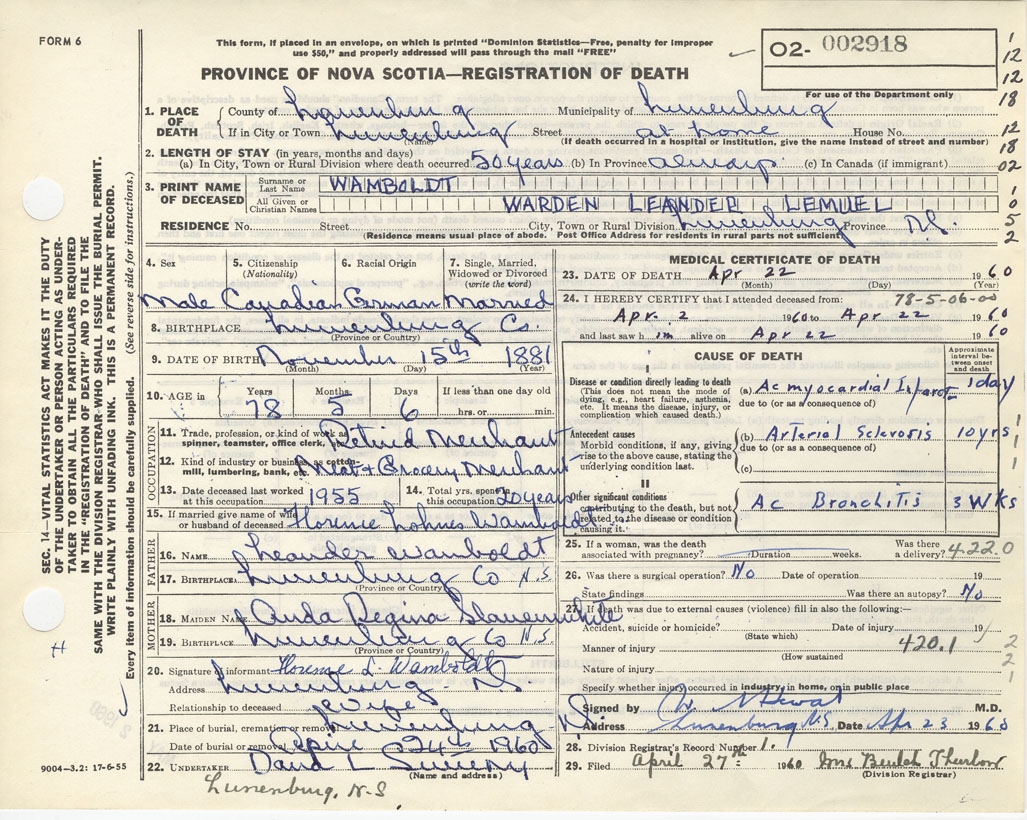 FORM 6
This form, if placed in an envelope, on which is printed "Dominion Statistics—Free, penalty for improper
use $50," and properly addressed will pass through the mail "FREE"
PROVINCE OF NOVA SCOTIA—REGISTRATION OF DEATH
02- 002918
For use of the Department only
1
12
12
18
12
18
02
1
0
5
2
1. PLACE OF DEATH
County of Lunenburg Municipality of Lunenburg
If in City or Town Lunenburg Street at home House No.
(Name) (If death occurred in a hospital or institution, give the name instead of street and number)
2. LENGTH OF STAY (in years, months and days)
(a) In City, Town or Rural Division where death occurred 50 years (b) In Province always (c) In Canada (if immigrant)
3. PRINT NAME OF DECEASED
Surname or Last Name WAMBOLDT
All Given or Christian Names WARDEN LEANDER LEMUEL
RESIDENCE No. Street City, Town or Rural Division Lunenburg Province N.S.
(Residence means usual place of abode. Post Office Address for residents in rural parts not sufficient)
4. Sex 5. Citizenship (Nationality) 6. Racial Origin 7. Single, Married, Widowed or Divorced (write the word)
Male Canadian German Married
8. BIRTHPLACE Lunenburg Co.
(Province or Country)
9. DATE OF BIRTH November 15th 1881
(Month) (Day) (Year)
10. AGE in Years Months Days If less than one day old
78 5 6 hrs. or min.
OCCUPATION
11. Trade, profession, or kind of work as spinner, teamster, office clerk, Retired Merchant
12. Kind of industry or business, as cotton-mill, lumbering, bank, etc. Meat & Grocery Merchant
13. Date deceased last worked at this occupation 1955
14. Total yrs. spent in this occupation 20 years
15. If married give name of wife or husband of deceased Florence Lohnes Wamboldt
FATHER
16. NAME Leander Wamboldt
17. BIRTHPLACE Lunenburg Co N.S.
(Province or Country)
MOTHER
18. MAIDEN NAME Regina Slauenwhite
19. BIRTHPLACE Lunenburg Co N.S.
(Province or Country)
20. Signature of informant Florence L. Wamboldt
Address Lunenburg - N.S
Relationship to deceased wife
21. Place of burial, cremation or removal Lunenburg
Date of burial or removal 24th 1960
22. UNDERTAKER David L Sweeny
(Name and address)
Lunenburg, N-S
9004-3.2: 17-6-55
SEC. 14—VITAL STATISTICS ACT MAKES IT THE DUTY
OF THE UNDERTAKER OR PERSON ACTING AS UNDER-
TAKER TO OBTAIN ALL THE PARTICULARS REQUIRED
IN THE "REGISTRATION OF DEATH" AND TO FILE THE
SAME WITH THE DIVISION REGISTRAR WHO SHALL ISSUE THE BURIAL PERMIT.
WRITE PLAINLY WITH UNFADING INK. THIS IS A PERMANENT RECORD.
Every item of information should be carefully supplied. (See reverse side for instructions.)
MEDICAL CERTIFICATE OF DEATH
23. DATE OF DEATH Apr 22 1960
(Month) (Day) (Year)
24. I HEREBY CERTIFY that I attended deceased from: 78-5-06-00
Apr. 2 1960 to Apr 22 1960
and last saw him alive on Apr 22 1960
CAUSE OF DEATH
Approximate interval between onset and death
I
Disease or condition directly leading to death
(This does not mean the mode of dying, e.g., heart failure, asthenia, etc. It means the disease, injury, or complication which caused death.)
(a) Ac myocardial Infarct 1 day
due to (or as a consequence of)
Antecedent causes
Morbid conditions, if any, giving rise to the above cause, stating the underlying condition last.
(b) Arterial Sclerosis 10 yrs
due to (or as a consequence of)
(c)
II
Other significant conditions contributing to the death, but not related to the disease or condition causing it.
Ac Bronchitis 3 Wks
25. If a woman, was the death associated with pregnancy? Duration weeks. Was there a delivery?
422.0
26. Was there a surgical operation? No Date of operation 19
State findings Was there an autopsy? No
27. If death was due to external causes (violence) fill in also the following:—
Accident, suicide or homicide? Date of injury 19
(State which)
Manner of injury 420.1
(How sustained
Nature of injury
Specify whether injury occurred in industry, in home, or in public place
Signed by M.D.
Address Lunenburg N.S. Date Apr 23 1960
28. Division Registrar's Record Number 1.
29. Filed April 27th 1960 Mrs Beulah Thurlow
(Division Registrar)